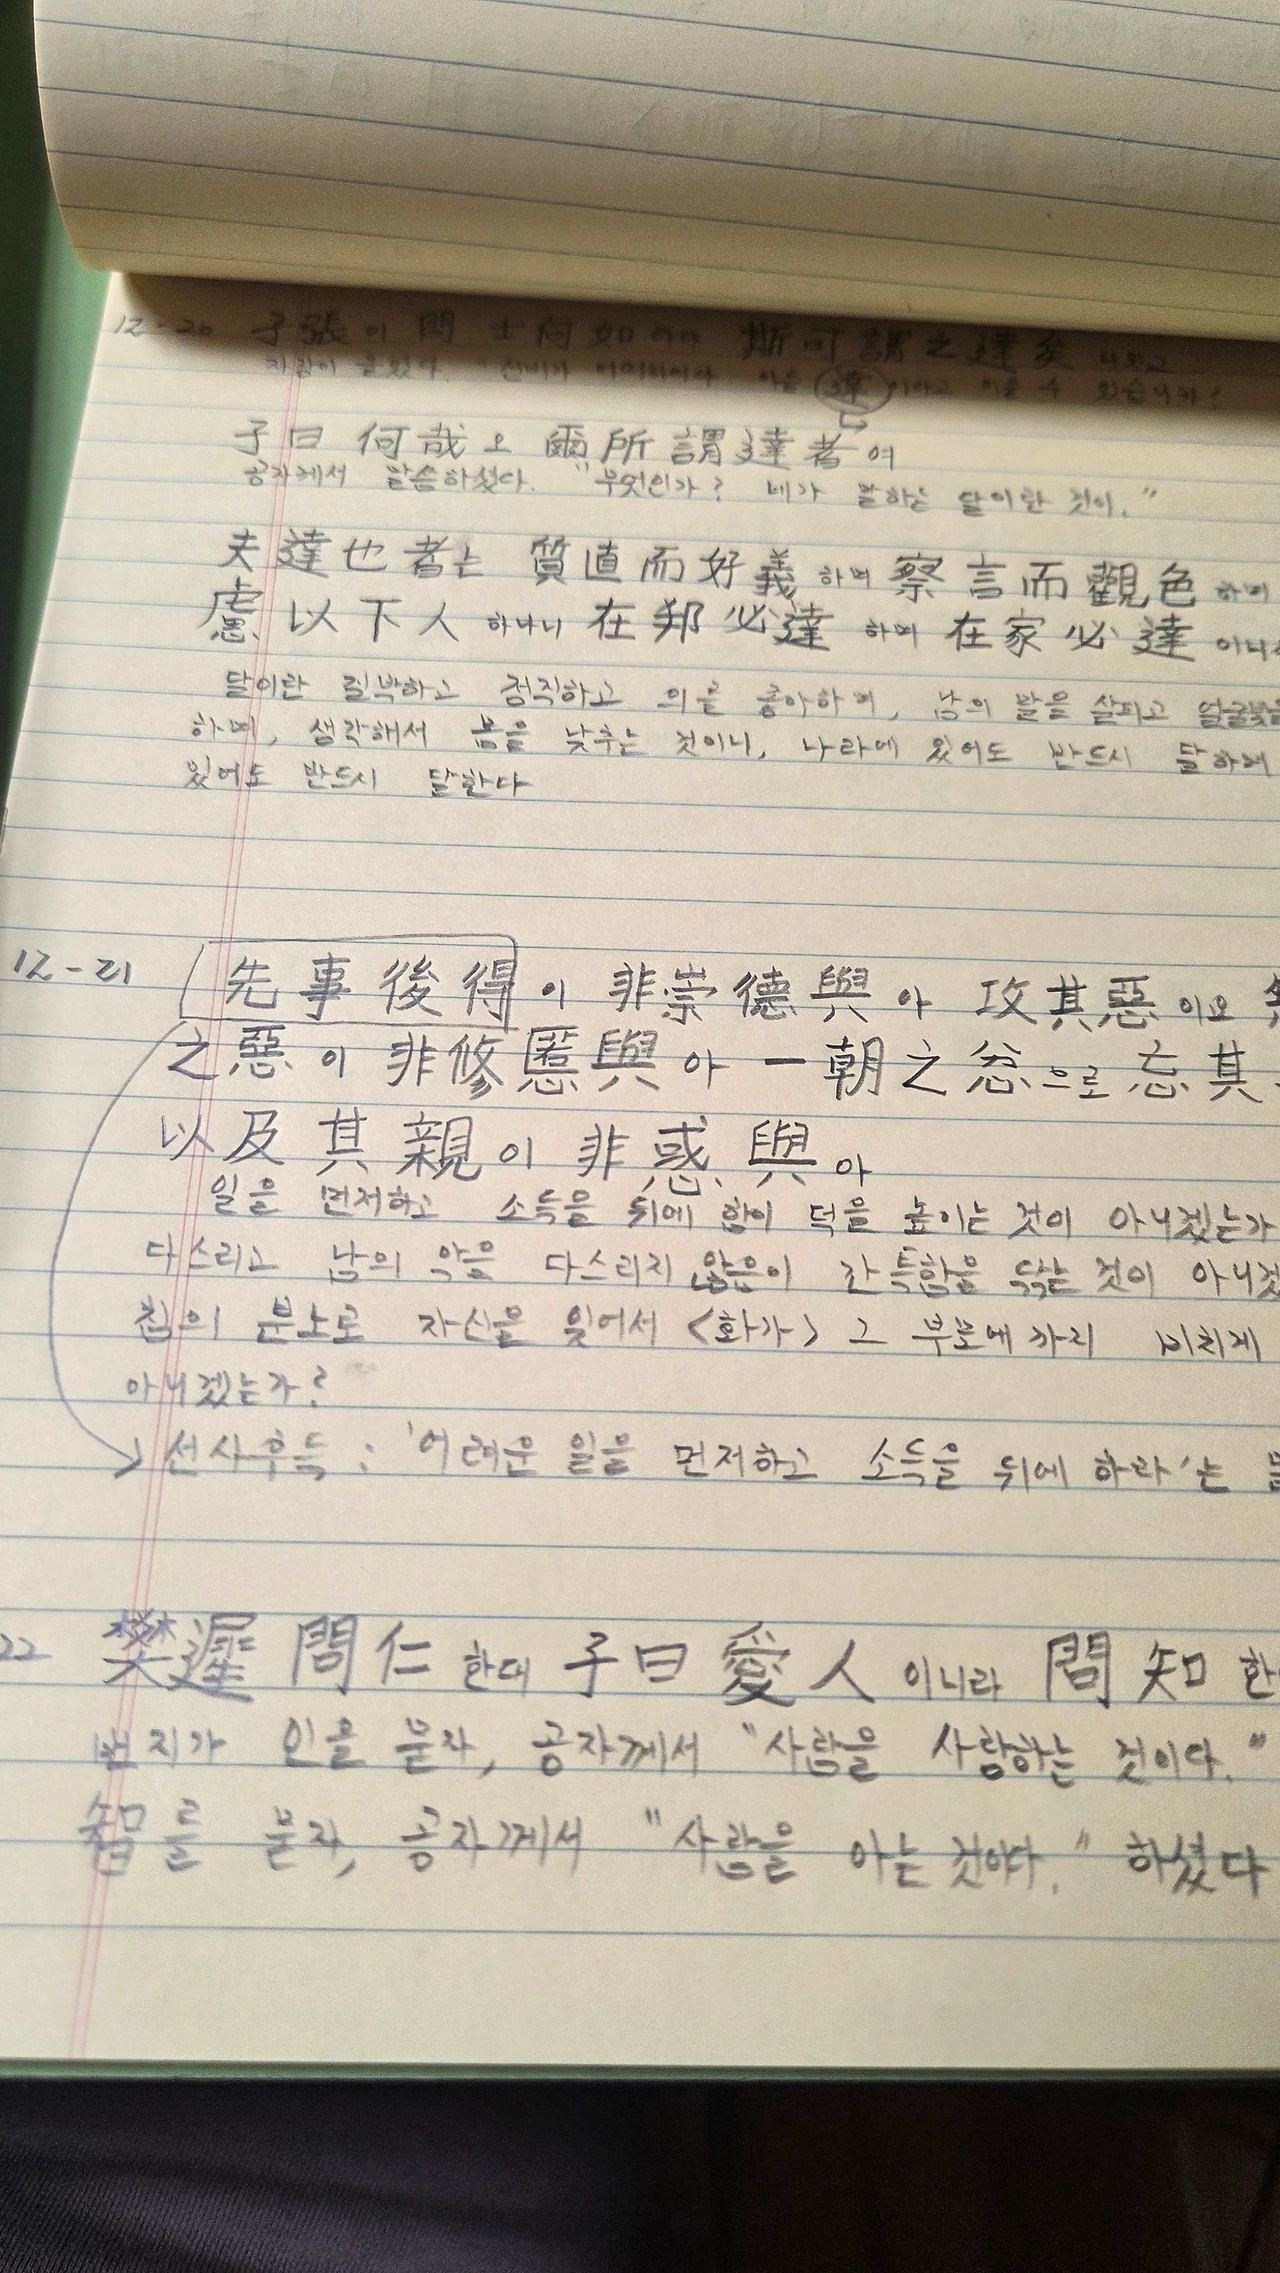 12-20 子張이 問 士何如라야 斯可謂之達矣 니잇고
자장이 물었다. "선비가 어떠하여야 이를 達이라고 이를 수 있습니까?
子曰 何哉오 爾所謂達者여
공자께서 말씀하셨다. "무엇인가? 네가 말하는 달이란 것이."
夫達也者는 質直而好義하며 察言而觀色하며
慮以下人하나니 在邦必達하며 在家必達이니
달이란 질박하고 정직하고 의를 좋아하며, 남의 말을 살피고 얼굴빛을
하며, 생각해서 몸을 낮추는 것이니, 나라에 있어도 반드시 달하며
있어도 반드시 달한다
12-21 先事後得이 非崇德與아 攻其惡이요
之惡이 非修慝與아 一朝之忿으로 忘其
以及其親이 非惑與아
일을 먼저하고 소득을 뒤에 함이 덕을 높이는 것이 아니겠는가
다스리고 남의 악을 다스리지 않은이 간특함을 닦는 것이 아니겠
침의 분노로 자신을 잊어서 <화가> 그 부모에까지 미치게
아니겠는가?
선사후득 : '어려운 일을 먼저하고 소득을 뒤에 하라'는
22 樊遲問仁한대 子曰愛人이니라 問知한
번지가 인을 묻자, 공자께서 "사람을 사랑하는 것이다."
智를 묻자, 공자께서 "사람을 아는 것이다." 하셨다